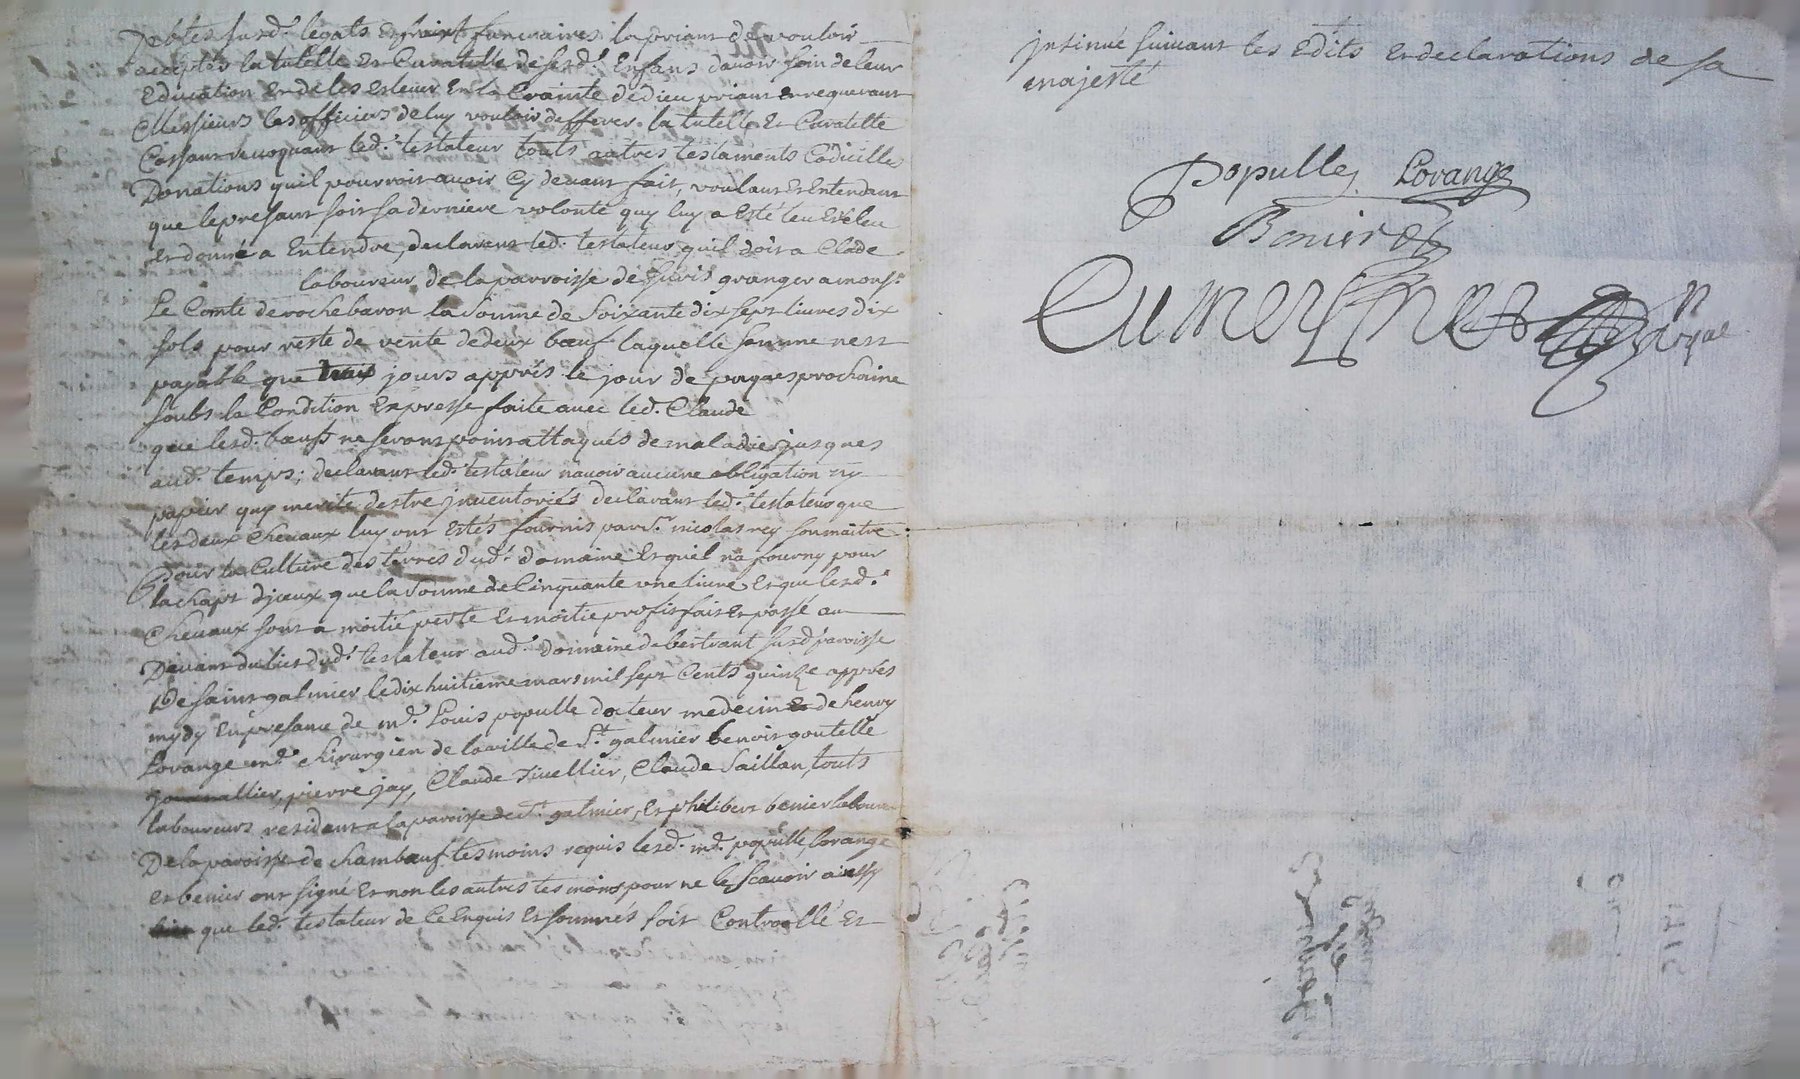 Debtes susd.t legats et fraix funeraires la priant de vouloir
accepter la tutelle et Curatelle de sesd.t Enfans davoir soin de leur
Education et de les eslever En la Crainte de dieu priant et requerant
Messieurs les officiers de luy vouloir defferer la tutelle et Curatelle
Cassant revoquant led.t testateur touts autres testaments Codicilles
Donations quil pourroit avoir Cy devant fait, voulant et Entendant
que le presant soit sa derniere volonté quy luy a Esté leu
et donné a Entendre, declarent led.t testateur quil doit a Clade
laboureur de la parroisse de granger a mons.r
Le Comte de rochebaron la Somme de Soixante dix sept livres dix
sols pour reste de vente de deux bœuf laquelle somme nest
payable que jours appres le jour de paques prochaine
soubs la Condition Expresse faite avec led. Claude
que lesd. bœufs ne seront point attaqués de maladie jusques
aud. temps; declarant led.t testateur navoir aucune obligation ny
papier quy merite destre jnventoriés declarant led.t testateur que
les deux Chevaux luy ont Estés fournis par S.r nicolas rey son maitre
pour la Culture des terres dud.t domaine Et quil na fourny pour
lachapt djceux que la Somme de Cinquante une livre, Et que lesd.t
Chevaux sont a moitié perte Et moitie profit fait Et passé au
Devant du lict dud.t testateur aud.t domaine de bertrant susd paroisse
De saint galmier le dix huitieme mars mil sept Cents quinze appres
mydy En presance de m.e Louis populle docteur medecin de henry
Lorange m.e chirurgien de la ville de S.t galmier benoit goutelle
pierre jay, Claude Tivellier, Claude Saillan, touts
laboureurs resident a la paroisse de S.t galmier, Et philibert benier laboureur
De la paroisse de Chambœuf tesmoins requis lesd. m.e populle, lorange
et benier ont signé Et non les autres tesmoins pour ne le scavoir ainsy
que led.t testateur de Ce Enquis Et sommés soit Controollé Et
jnsinué suivant les Edits et declarations de sa
majesté
Populle Lorange
Benier
1715